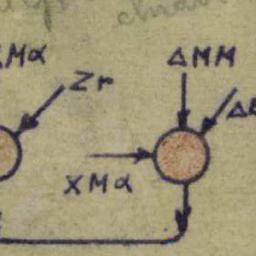 Mα
Zr
ΔMM
Δ
XMα